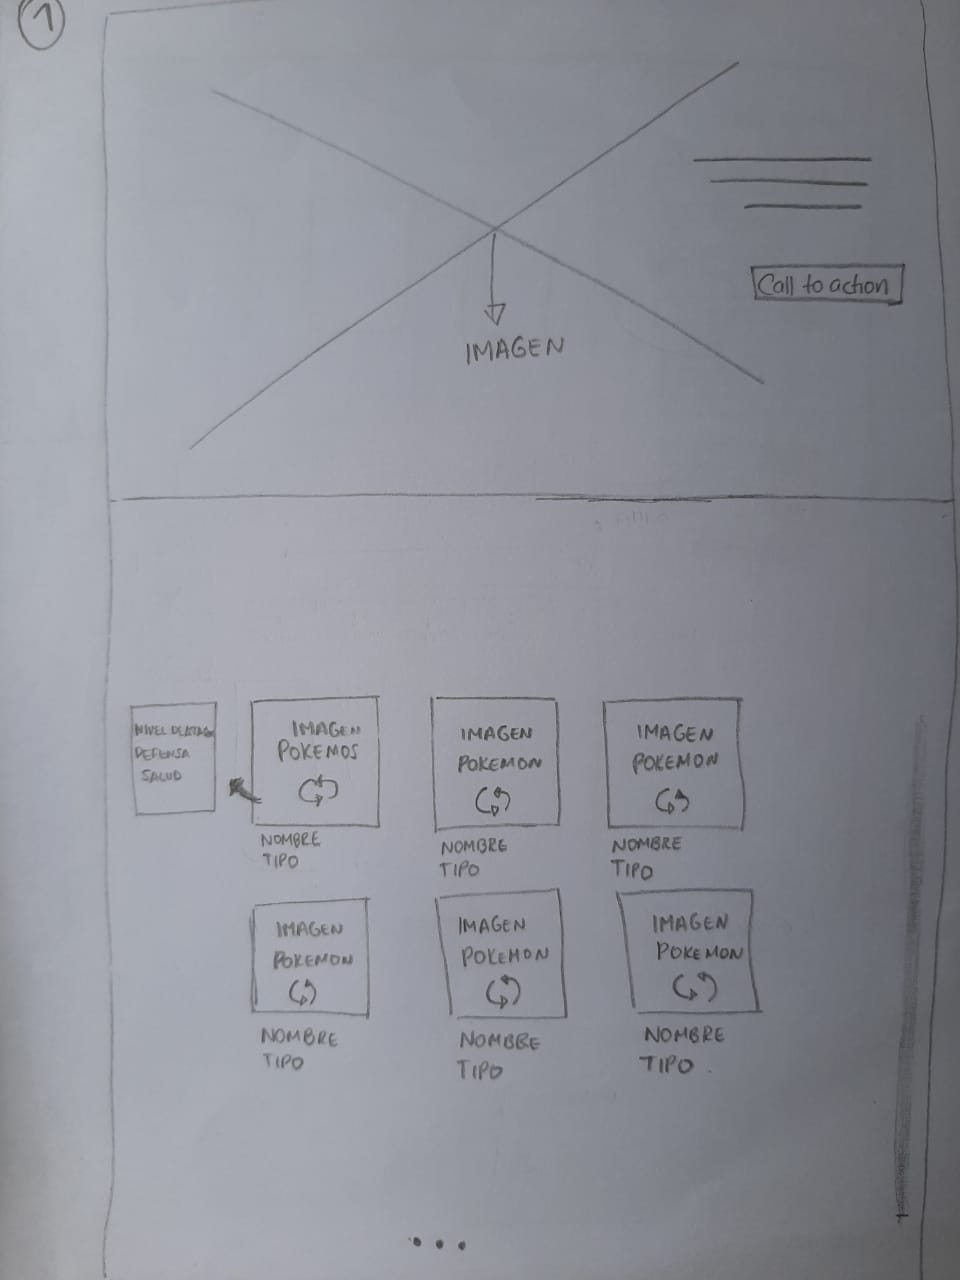 1
Call to action
IMAGEN
NIVEL DE ATAQUE
DEFENSA
SALUD
IMAGEN
POKEMOS
NOMBRE
TIPO
IMAGEN
POKEMON
NOMBRE
TIPO
IMAGEN
POKEMON
NOMBRE
TIPO
IMAGEN
POKEMON
NOMBRE
TIPO
IMAGEN
POKEMON
NOMBRE
TIPO
IMAGEN
POKEMON
NOMBRE
TIPO.
...